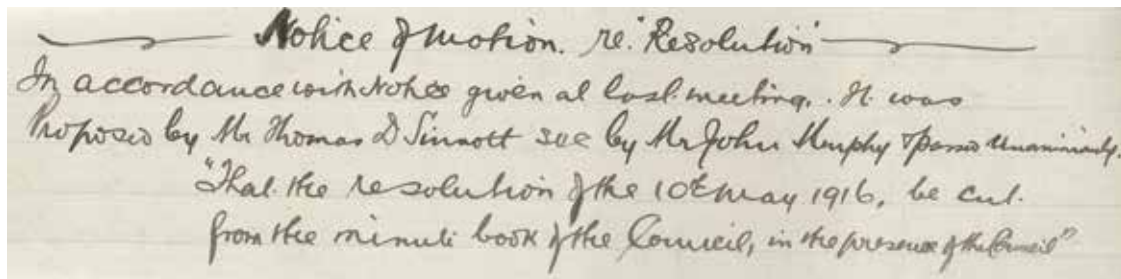 Notice of motion. re. "Resolution"
In accordance with Notice given at last meeting. It was
Proposed by Mr Thomas D Sinnott sec by Mr John Murphy & passed unanimously.
"That the resolution of the 10th May 1916, be cut
from the minute book of the Council, in the presence of the Council"